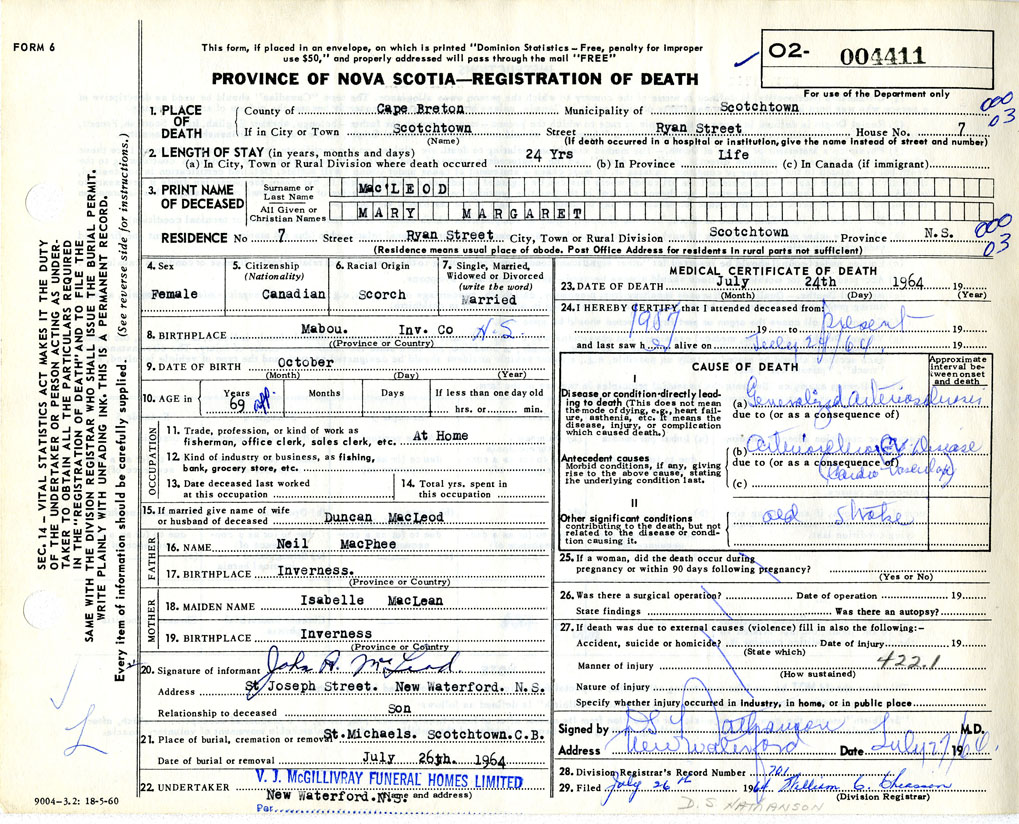 FORM 6
This form, if placed in an envelope, on which is printed "Dominion Statistics – Free, penalty for improper
use $50," and properly addressed will pass through the mail "FREE"
PROVINCE OF NOVA SCOTIA—REGISTRATION OF DEATH
O2- 004411
For use of the Department only
000
03
1. PLACE OF DEATH
County of Cape Breton Municipality of Scotchtown
If in City or Town Scotchtown Street Ryan Street House No. 7
(Name) (If death occurred in a hospital or institution, give the name instead of street and number)
2. LENGTH OF STAY (in years, months and days)
(a) In City, Town or Rural Division where death occurred 24 Yrs (b) In Province Life (c) In Canada (if immigrant)
3. PRINT NAME OF DECEASED
Surname or Last Name MacLEOD
All Given or Christian Names MARY MARGARET
000
03
RESIDENCE No 7 Street Ryan Street City, Town or Rural Division Scotchtown Province N.S.
(Residence means usual place of abode. Post Office Address for residents in rural parts not sufficient)
4. Sex Female
5. Citizenship (Nationality) Canadian
6. Racial Origin Scorch
7. Single, Married, Widowed or Divorced (write the word) Married
8. BIRTHPLACE Mabou. Inv. Co N.S.
(Province or Country)
9. DATE OF BIRTH October
(Month) (Day) (Year)
10. AGE in Years 69 app. Months Days If less than one day old hrs. or min.
OCCUPATION
11. Trade, profession, or kind of work as fisherman, office clerk, sales clerk, etc. At Home
12. Kind of industry or business, as fishing, bank, grocery store, etc.
13. Date deceased last worked at this occupation
14. Total yrs. spent in this occupation
15. If married give name of wife or husband of deceased Duncan MacLeod
FATHER
16. NAME Neil MacPhee
17. BIRTHPLACE Inverness.
(Province or Country)
MOTHER
18. MAIDEN NAME Isabelle MacLean
19. BIRTHPLACE Inverness
(Province or Country)
20. Signature of informant John A. McLeod
Address St Joseph Street. New Waterford. N.S.
Relationship to deceased Son
21. Place of burial, cremation or removal St.Michaels. Scotchtown.C.B.
Date of burial or removal July 26th. 1964
22. UNDERTAKER V. J. McGILLIVRAY FUNERAL HOMES LIMITED
New Waterford.N.S. (Name and address)
Per
9004-3.2: 18-5-60
SEC. 14 – VITAL STATISTICS ACT MAKES IT THE DUTY
OF THE UNDERTAKER OR PERSON ACTING AS UNDER-
TAKER TO OBTAIN ALL THE PARTICULARS REQUIRED
IN THE "REGISTRATION OF DEATH" AND TO FILE THE
SAME WITH THE DIVISION REGISTRAR WHO SHALL ISSUE THE BURIAL PERMIT.
WRITE PLAINLY WITH UNFADING INK. THIS IS A PERMANENT RECORD.
Every item of information should be carefully supplied. (See reverse side for instructions.)
MEDICAL CERTIFICATE OF DEATH
23. DATE OF DEATH July 24th 1964 19
(Month) (Day) (Year)
24. I HEREBY CERTIFY that I attended deceased from:
19 to present 19
and last saw h alive on July 24/64. 19
CAUSE OF DEATH
Approximate interval between onset and death
I
Disease or condition directly leading to death (This does not mean the mode of dying, e.g., heart failure, asthenia, etc. It means the disease, injury, or complication which caused death.)
(a) Generalized arteriosclerosis
due to (or as a consequence of)
Antecedent causes
Morbid conditions, if any, giving rise to the above cause, stating the underlying condition last.
(b) arteriosclerotic CV Disease
due to (or as a consequence of)
(Cardio Vascular)
(c)
II
Other significant conditions
contributing to the death, but not related to the disease or condition causing it.
old stroke
25. If a woman, did the death occur during
pregnancy or within 90 days following pregnancy?
(Yes or No)
26. Was there a surgical operation? Date of operation 19
State findings Was there an autopsy?
27. If death was due to external causes (violence) fill in also the following:–
Accident, suicide or homicide? Date of injury 19
(State which)
Manner of injury 422.1
(How sustained)
Nature of injury
Specify whether injury occurred in industry, in home, or in public place
Signed by D S Nathanson M.D.
Address New Waterford Date July 27 1964.
28. Division Registrar's Record Number 701
29. Filed July 26th 1964 William C. Chiasson
(Division Registrar)
D.S NATHANSON